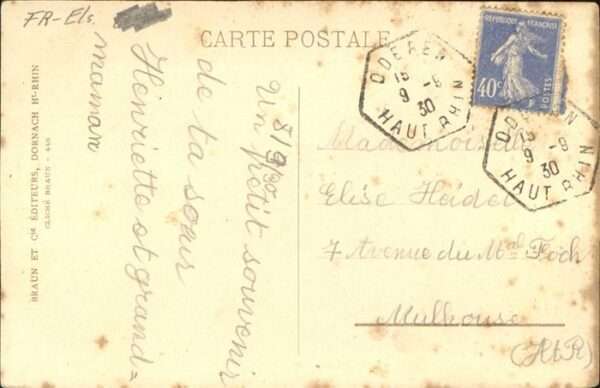 FR-Els.
CARTE POSTALE
8/9 30
Un petit souvenir
de ta sœur
Henriette et grand=
maman
BRAUN ET Cie ÉDITEURS, DORNACH Ht-RHIN
CLICHÉ BRAUN -
RÉPUBLIQUE FRANÇAISE
40c
POSTES
ODEREN
15 -9
9 30
HAUT RHIN
ODEREN
15 -9
9 30
HAUT RHIN
Mademoiselle
Elise Heidet
7 Avenue du Mal Foch
Mulhouse
(Ht R)